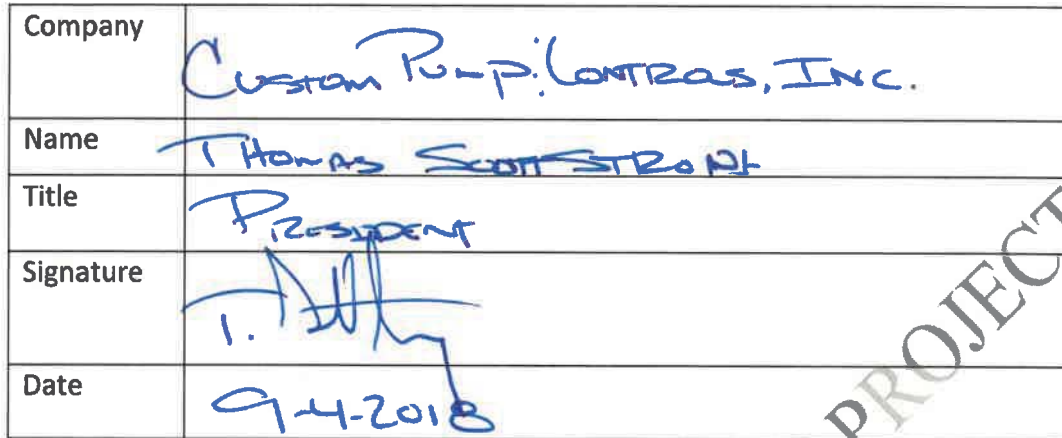 Company Custom Pump & Controls, Inc.
Name Thomas Scott Strong
Title President
Signature T.
Date 9-4-2018
PROJECT